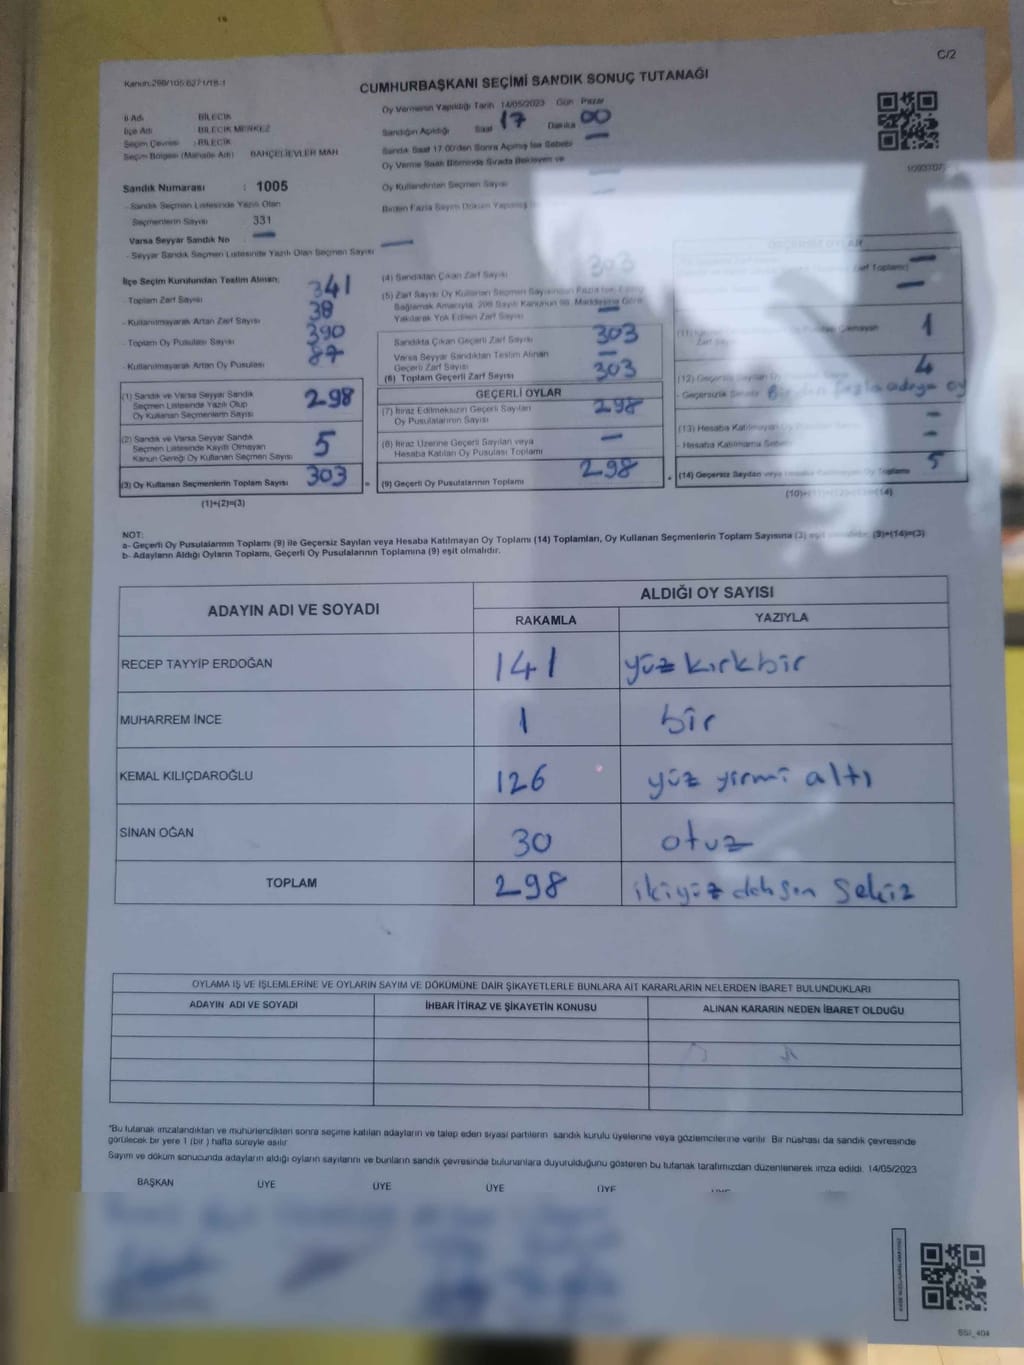 C/2
CUMHURBAŞKANI SEÇİMİ SANDIK SONUÇ TUTANAĞI
İl Adı BİLECİK
İlçe Adı BİLECİK MERKEZ
Seçim Çevresi : BİLECİK
Seçim Bölgesi (Mahalle Adı) BAHÇELİEVLER MAH
Sandık Numarası : 1005
- Sandık Seçmen Listesinde Yazılı Olan
Seçmenlerin Sayısı 331
Varsa Seyyar Sandık No —
- Seyyar Sandık Seçmen Listesinde Yazılı Olan Seçmen Sayısı —
Oy Vermenin Yapıldığı Tarih 14/05/2023 Gün Pazar
Sandığın Açıldığı Saat 17 Dakika 00
Sandık Saat 17:00'den Sonra Açılmış İse Sebebi —
Oy Verme Saati Bitiminde Sırada Bekleyen ve
Oy Kullandırılan Seçmen Sayısı —
Birden Fazla Sayım Döküm Yapılmış
İlçe Seçim Kurulundan Teslim Alınan:
- Toplam Zarf Sayısı 341
- Kullanılmayarak Artan Zarf Sayısı 38
- Toplam Oy Pusulası Sayısı 390
- Kullanılmayarak Artan Oy Pusulası 87
(1) Sandık ve Varsa Seyyar Sandık
Seçmen Listesinde Yazılı Olup
Oy Kullanan Seçmenlerin Sayısı 298
(2) Sandık ve Varsa Seyyar Sandık
Seçmen Listesinde Kayıtlı Olmayan
Kanun Gereği Oy Kullanan Seçmen Sayısı 5
(3) Oy Kullanan Seçmenlerin Toplam Sayısı 303
(1)+(2)=(3)
(4) Sandıktan Çıkan Zarf Sayısı 303
(5) Zarf Sayısı Oy Kullanan Seçmen Sayısından Fazla ise, Eşitliği
Sağlamak Amacıyla, 298 Sayılı Kanunun 98. Maddesine Göre
Yakılarak Yok Edilen Zarf Sayısı —
Sandıkta Çıkan Geçerli Zarf Sayısı 303
Varsa Seyyar Sandıktan Teslim Alınan
Geçerli Zarf Sayısı —
(6) Toplam Geçerli Zarf Sayısı 303
GEÇERLİ OYLAR
(7) İtiraz Edilmeksizin Geçerli Sayılan
Oy Pusulalarının Sayısı 298
(8) İtiraz Üzerine Geçerli Sayılan veya
Hesaba Katılan Oy Pusulası Toplamı —
(9) Geçerli Oy Pusulalarının Toplamı 298
GEÇERSİZ OYLAR
Zarf Toplamı —
—
1
(12) Geçersiz Sayılan Oy 4
- Geçersizlik Sebebi Birden fazla adaya oy
(13) Hesaba Katılmayan Oy —
- Hesaba Katılmama Sebebi —
(14) Geçersiz Sayılan veya Hesaba Katılmayan Oy Toplamı 5
NOT:
a- Geçerli Oy Pusulalarının Toplamı (9) ile Geçersiz Sayılan veya Hesaba Katılmayan Oy Toplamı (14) Toplamları, Oy Kullanan Seçmenlerin Toplam Sayısına (3) (9)+(14)=(3)
b- Adayların Aldığı Oyların Toplamı, Geçerli Oy Pusulalarının Toplamına (9) eşit olmalıdır.
ADAYIN ADI VE SOYADI ALDIĞI OY SAYISI
RAKAMLA YAZIYLA
RECEP TAYYİP ERDOĞAN 141 yüz kırkbir
MUHARREM İNCE 1 bir
KEMAL KILIÇDAROĞLU 126 yüz yirmi altı
SİNAN OĞAN 30 otuz
TOPLAM 298 ikiyüz doksan sekiz
OYLAMA İŞ VE İŞLEMLERİNE VE OYLARIN SAYIM VE DÖKÜMÜNE DAİR ŞİKAYETLERLE BUNLARA AİT KARARLARIN NELERDEN İBARET BULUNDUKLARI
ADAYIN ADI VE SOYADI İHBAR İTİRAZ VE ŞİKAYETİN KONUSU ALINAN KARARIN NEDEN İBARET OLDUĞU
*Bu tutanak imzalandıktan ve mühürlendikten sonra seçime katılan adayların ve talep eden siyasi partilerin sandık kurulu üyelerine veya gözlemcilerine verilir. Bir nüshası da sandık çevresinde
görülecek bir yere 1 (bir) hafta süreyle asılır.
Sayım ve döküm sonucunda adayların aldığı oyların sayılarını ve bunların sandık çevresinde bulunanlara duyurulduğunu gösteren bu tutanak tarafımızdan düzenlenerek imza edildi. 14/05/2023
BAŞKAN ÜYE ÜYE ÜYE ÜYE